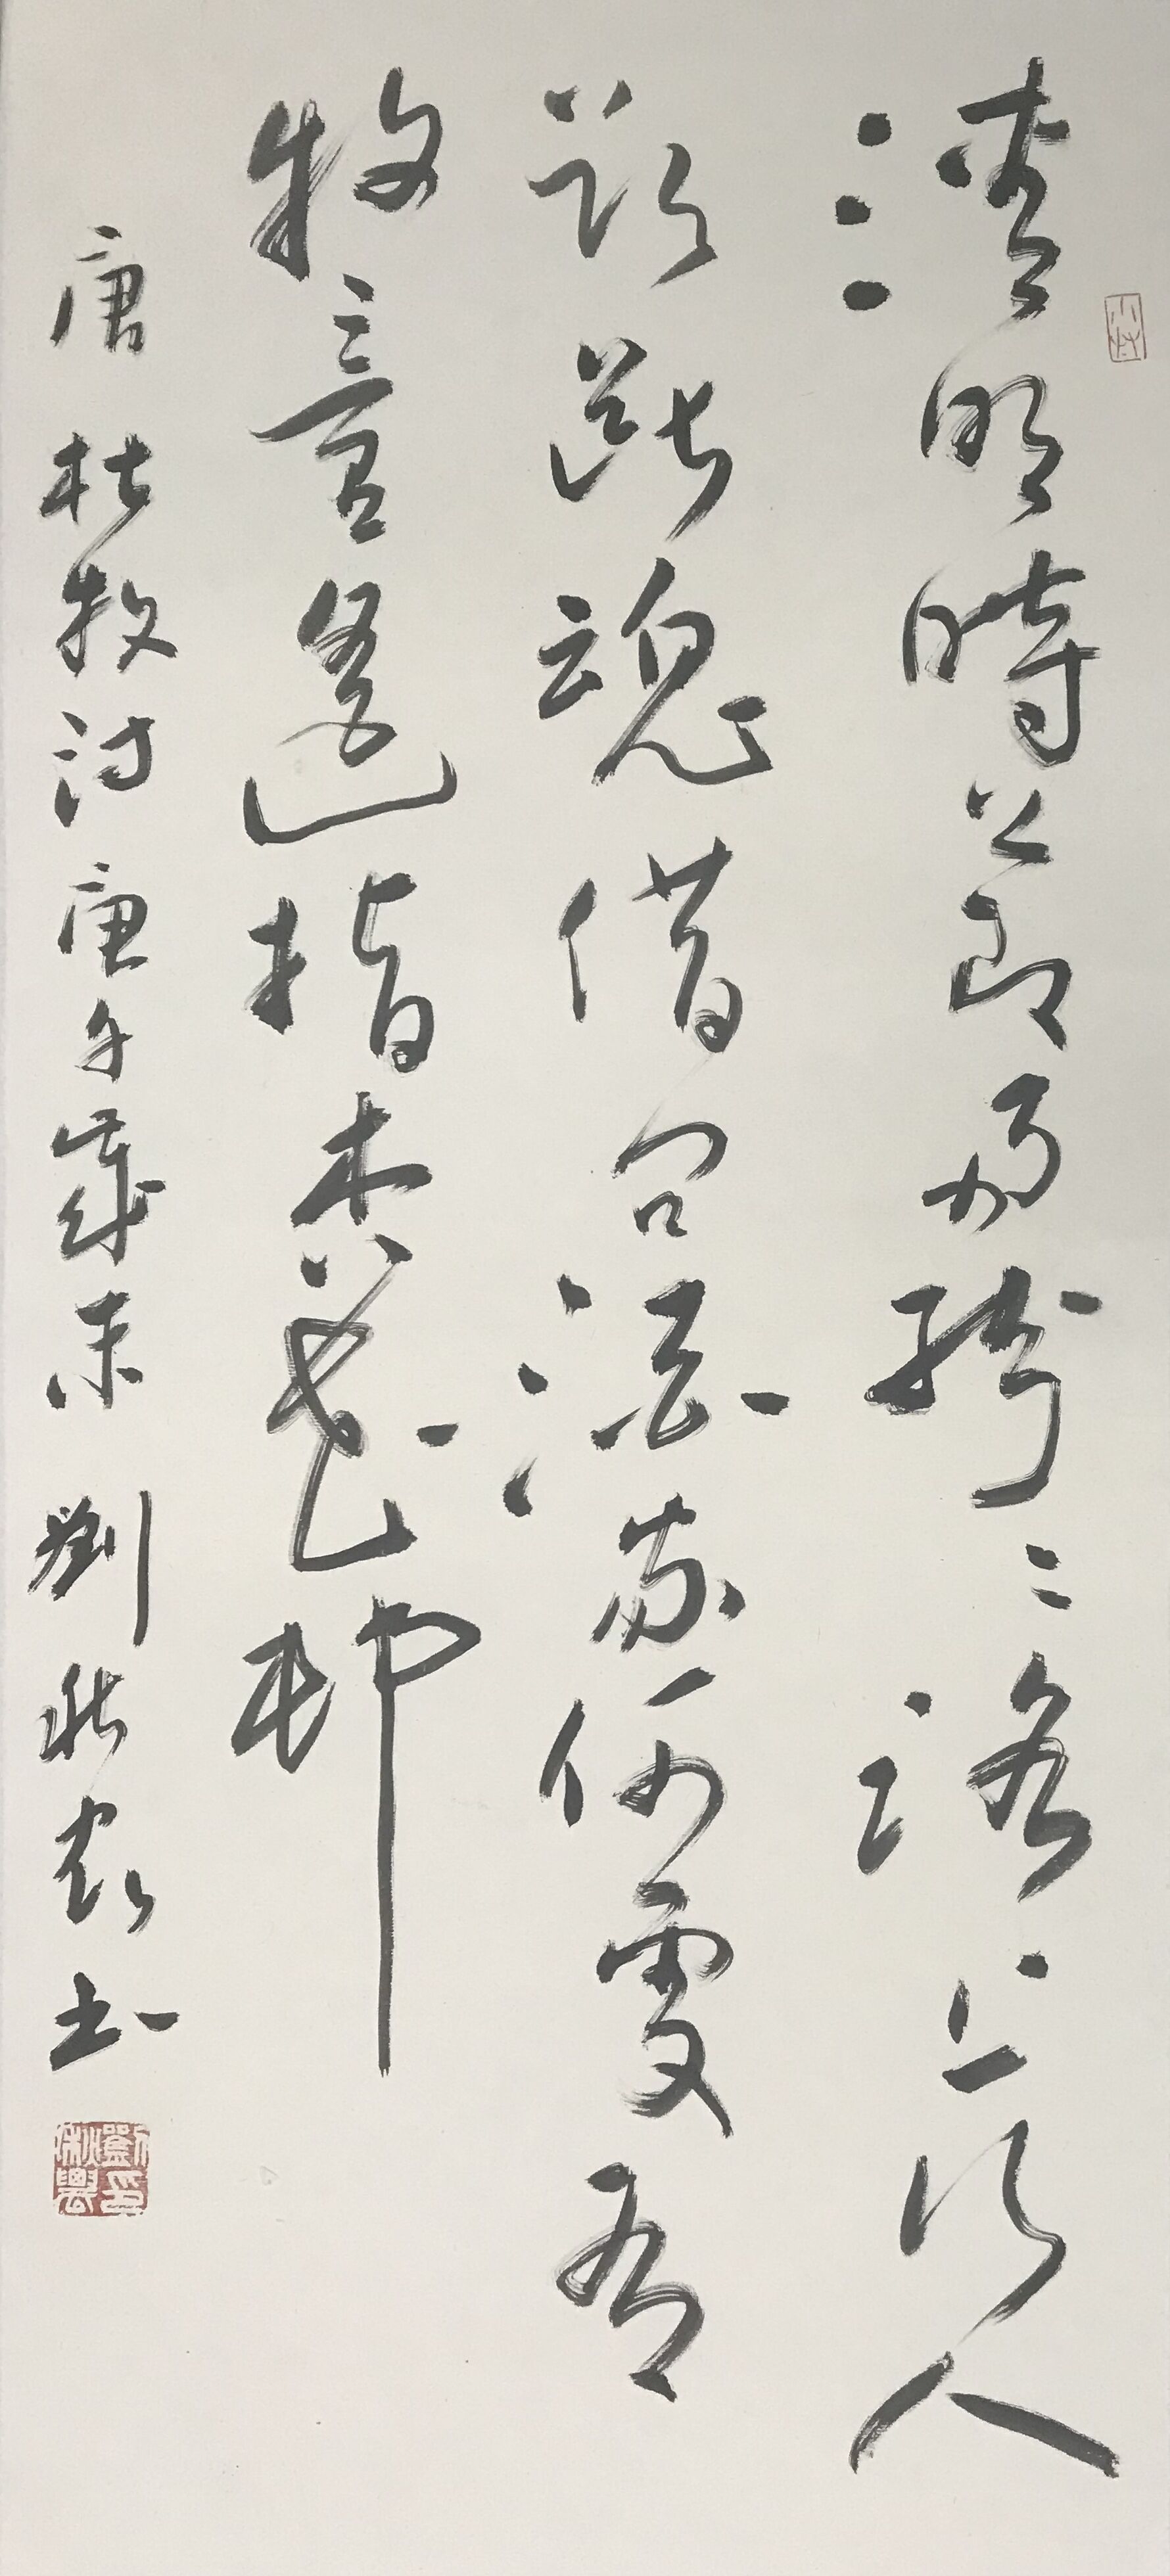 清明時節雨紛〻路上行人
欲斷魂借問酒家何處有
牧童遙指杏花村
唐 杜牧詩 庚午歲末 劉秋農書